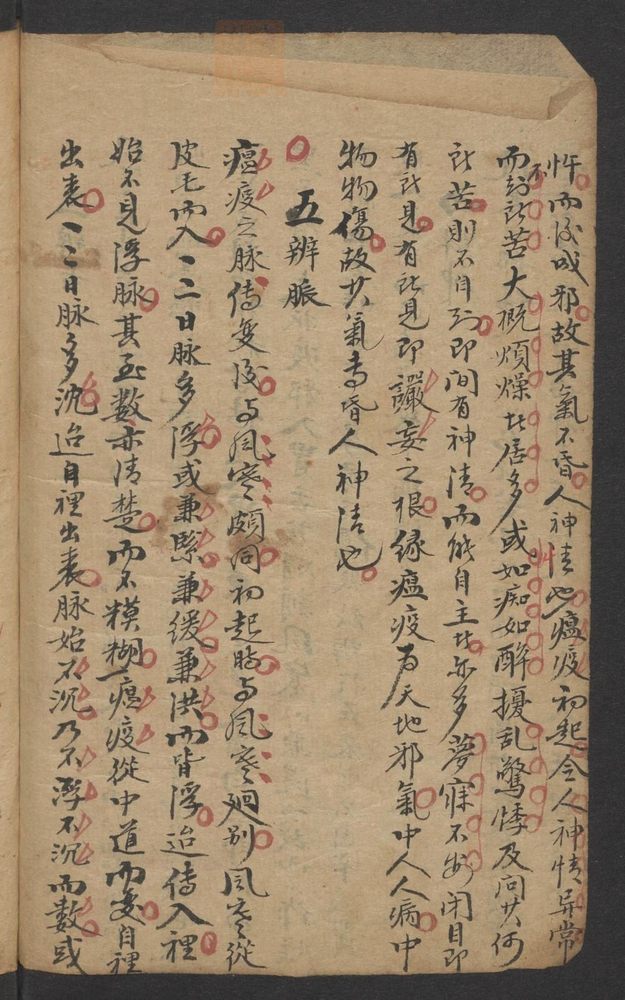 忤而後成邪故其氣不昏人神情也瘟疫初起令人神情异常
而不知所苦大概煩燥者居多或如痴如醉擾乱驚悸及问其何
所苦則不自知即间有神清而能自主者亦多夢寐不安闭目即
有所見有所見即讝妄之根緣瘟疫为天地邪氣中人人病中
物物傷故其氣專昏人神情也
五辨脈
瘟疫之脉傳变後与風寒頗同初起時与風寒廻别風寒從
皮毛而入一二日脉多浮或兼緊兼緩兼洪而皆浮迨傳入裡
始不見浮脉其至数亦清楚而不糢糊瘟疫從中道而变自裡
出表一二日脉多沈迨自裡出表脉始不沉乃不浮不沉而數或